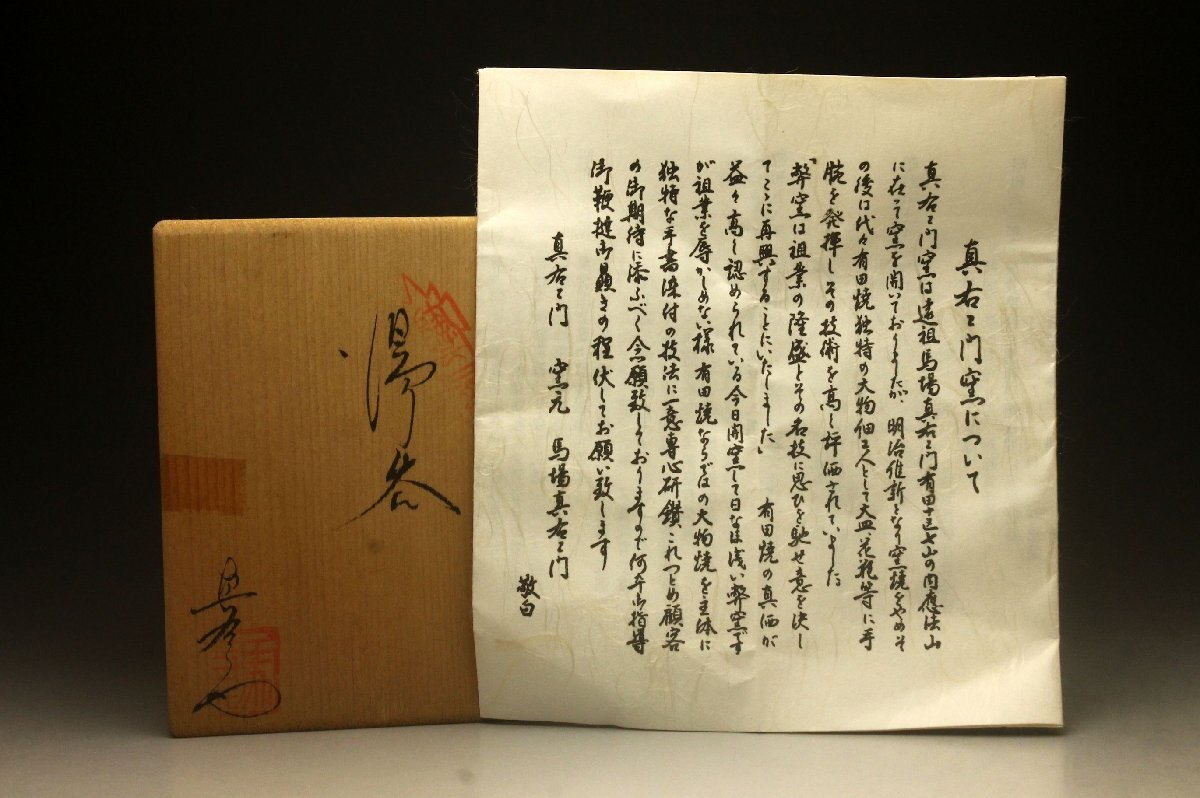 真右ヱ門窯について
真右ヱ門窯は遠祖馬場真右ヱ門有田十三七山の内應法山
に在って窯を開いておりましたが、明治維新となり窯焼をやめそ
の後は代々有田焼独特の大物細工人として大皿、花瓶等に手
腕を発揮しその技術を高く評価されていました
「弊窯は祖業の隆盛とその名技に思ひを馳せ意を決し
てここに再興することにいたしました」 有田焼の真価が
益々高く認められている今日開窯して日なほ浅い弊窯です
が祖業を辱かしめない様有田焼ならではの大物焼を主体に
独特な手書染付の技法に一意専心研鑽これつとめ顧客
の御期待に添ふべく念願致しておりますので何卒御指導
御鞭撻御贔屓の程伏してお願い致します
真右ヱ門 窯元 馬場真右ヱ門
敬白
湯呑
真右ヱ門